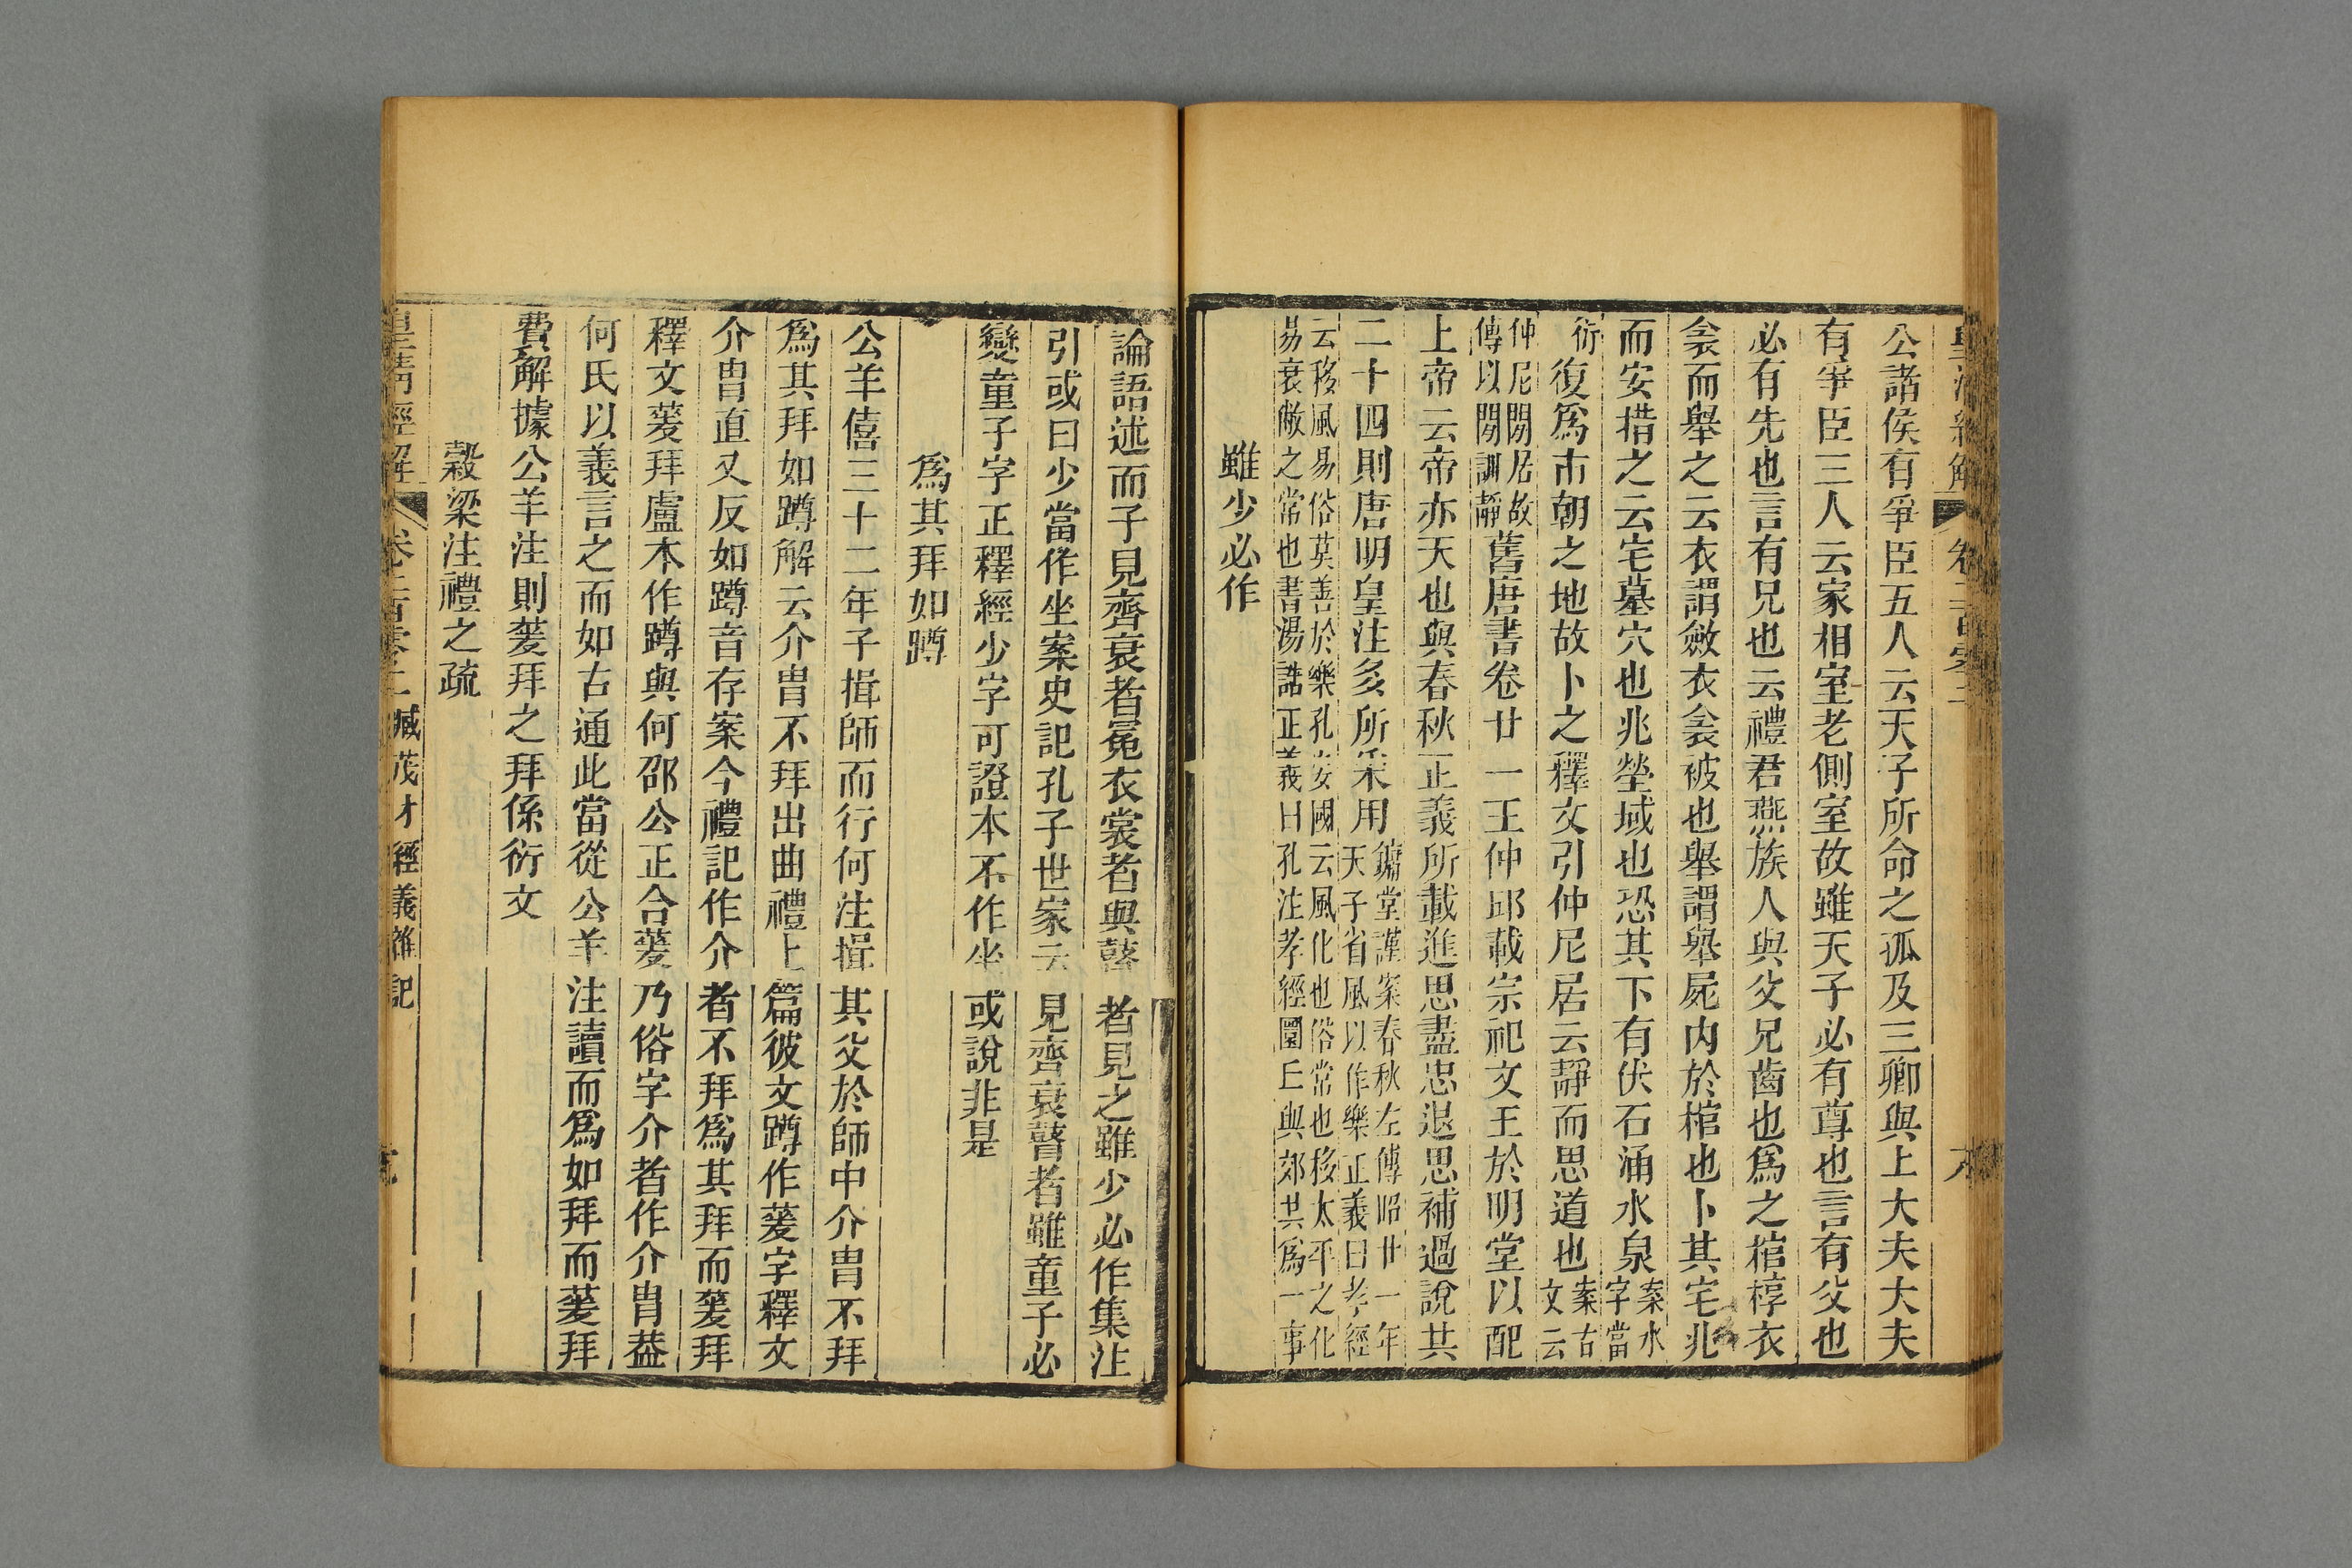 公諸侯有爭臣五人云天子所命之孤及三卿與上大夫大夫
有爭臣三人云家相室老側室故雖天子必有尊也言有父也
必有先也言有兄也云禮君燕族人與父兄齒也爲之棺椁衣
衾而舉之云衣謂斂衣衾被也舉謂舉屍内於棺也卜其宅兆
而安措之云宅墓穴也兆塋域也恐其下有伏石涌水泉案水字當
衍復爲市朝之地故卜之釋文引仲尼居云靜而思道也案古文云
仲尼閒居故傳以閒訓靜舊唐書卷廿一王仲邱載宗祀文王於明堂以配
上帝云帝亦天也與春秋正義所載進思盡忠退思補過說共
二十四則唐明皇注多所采用鏞堂謹案春秋左傳昭廿一年天子省風以作樂正義曰孝經
云移風易俗莫善於樂孔安國云風化也俗常也移太平之化易衰敝之常也書湯誥正義曰孔注孝經圜丘與郊共爲一事
雖少必作
論語述而子見齊衰者冕衣裳者與瞽者見之雖少必作集注
引或曰少當作坐案史記孔子世家云見齊衰瞽者雖童子必
變童子字正釋經少字可證本不作坐或說非是
爲其拜如蹲
公羊僖三十二年子揖師而行何注揖其父於師中介胄不拜
爲其拜如蹲解云介胄不拜出曲禮上篇彼文蹲作蓌字釋文
介胄直又反如蹲音存案今禮記作介者不拜爲其拜而蓌拜
釋文蓌拜盧本作蹲與何邵公正合蓌乃俗字介者作介胄葢
何氏以義言之而如古通此當從公羊注讀而爲如拜而蓌拜
費解據公羊注則蓌拜之拜係衍文
穀梁注禮之疏
皇清經解 卷二百零二 臧茂才經義雜記